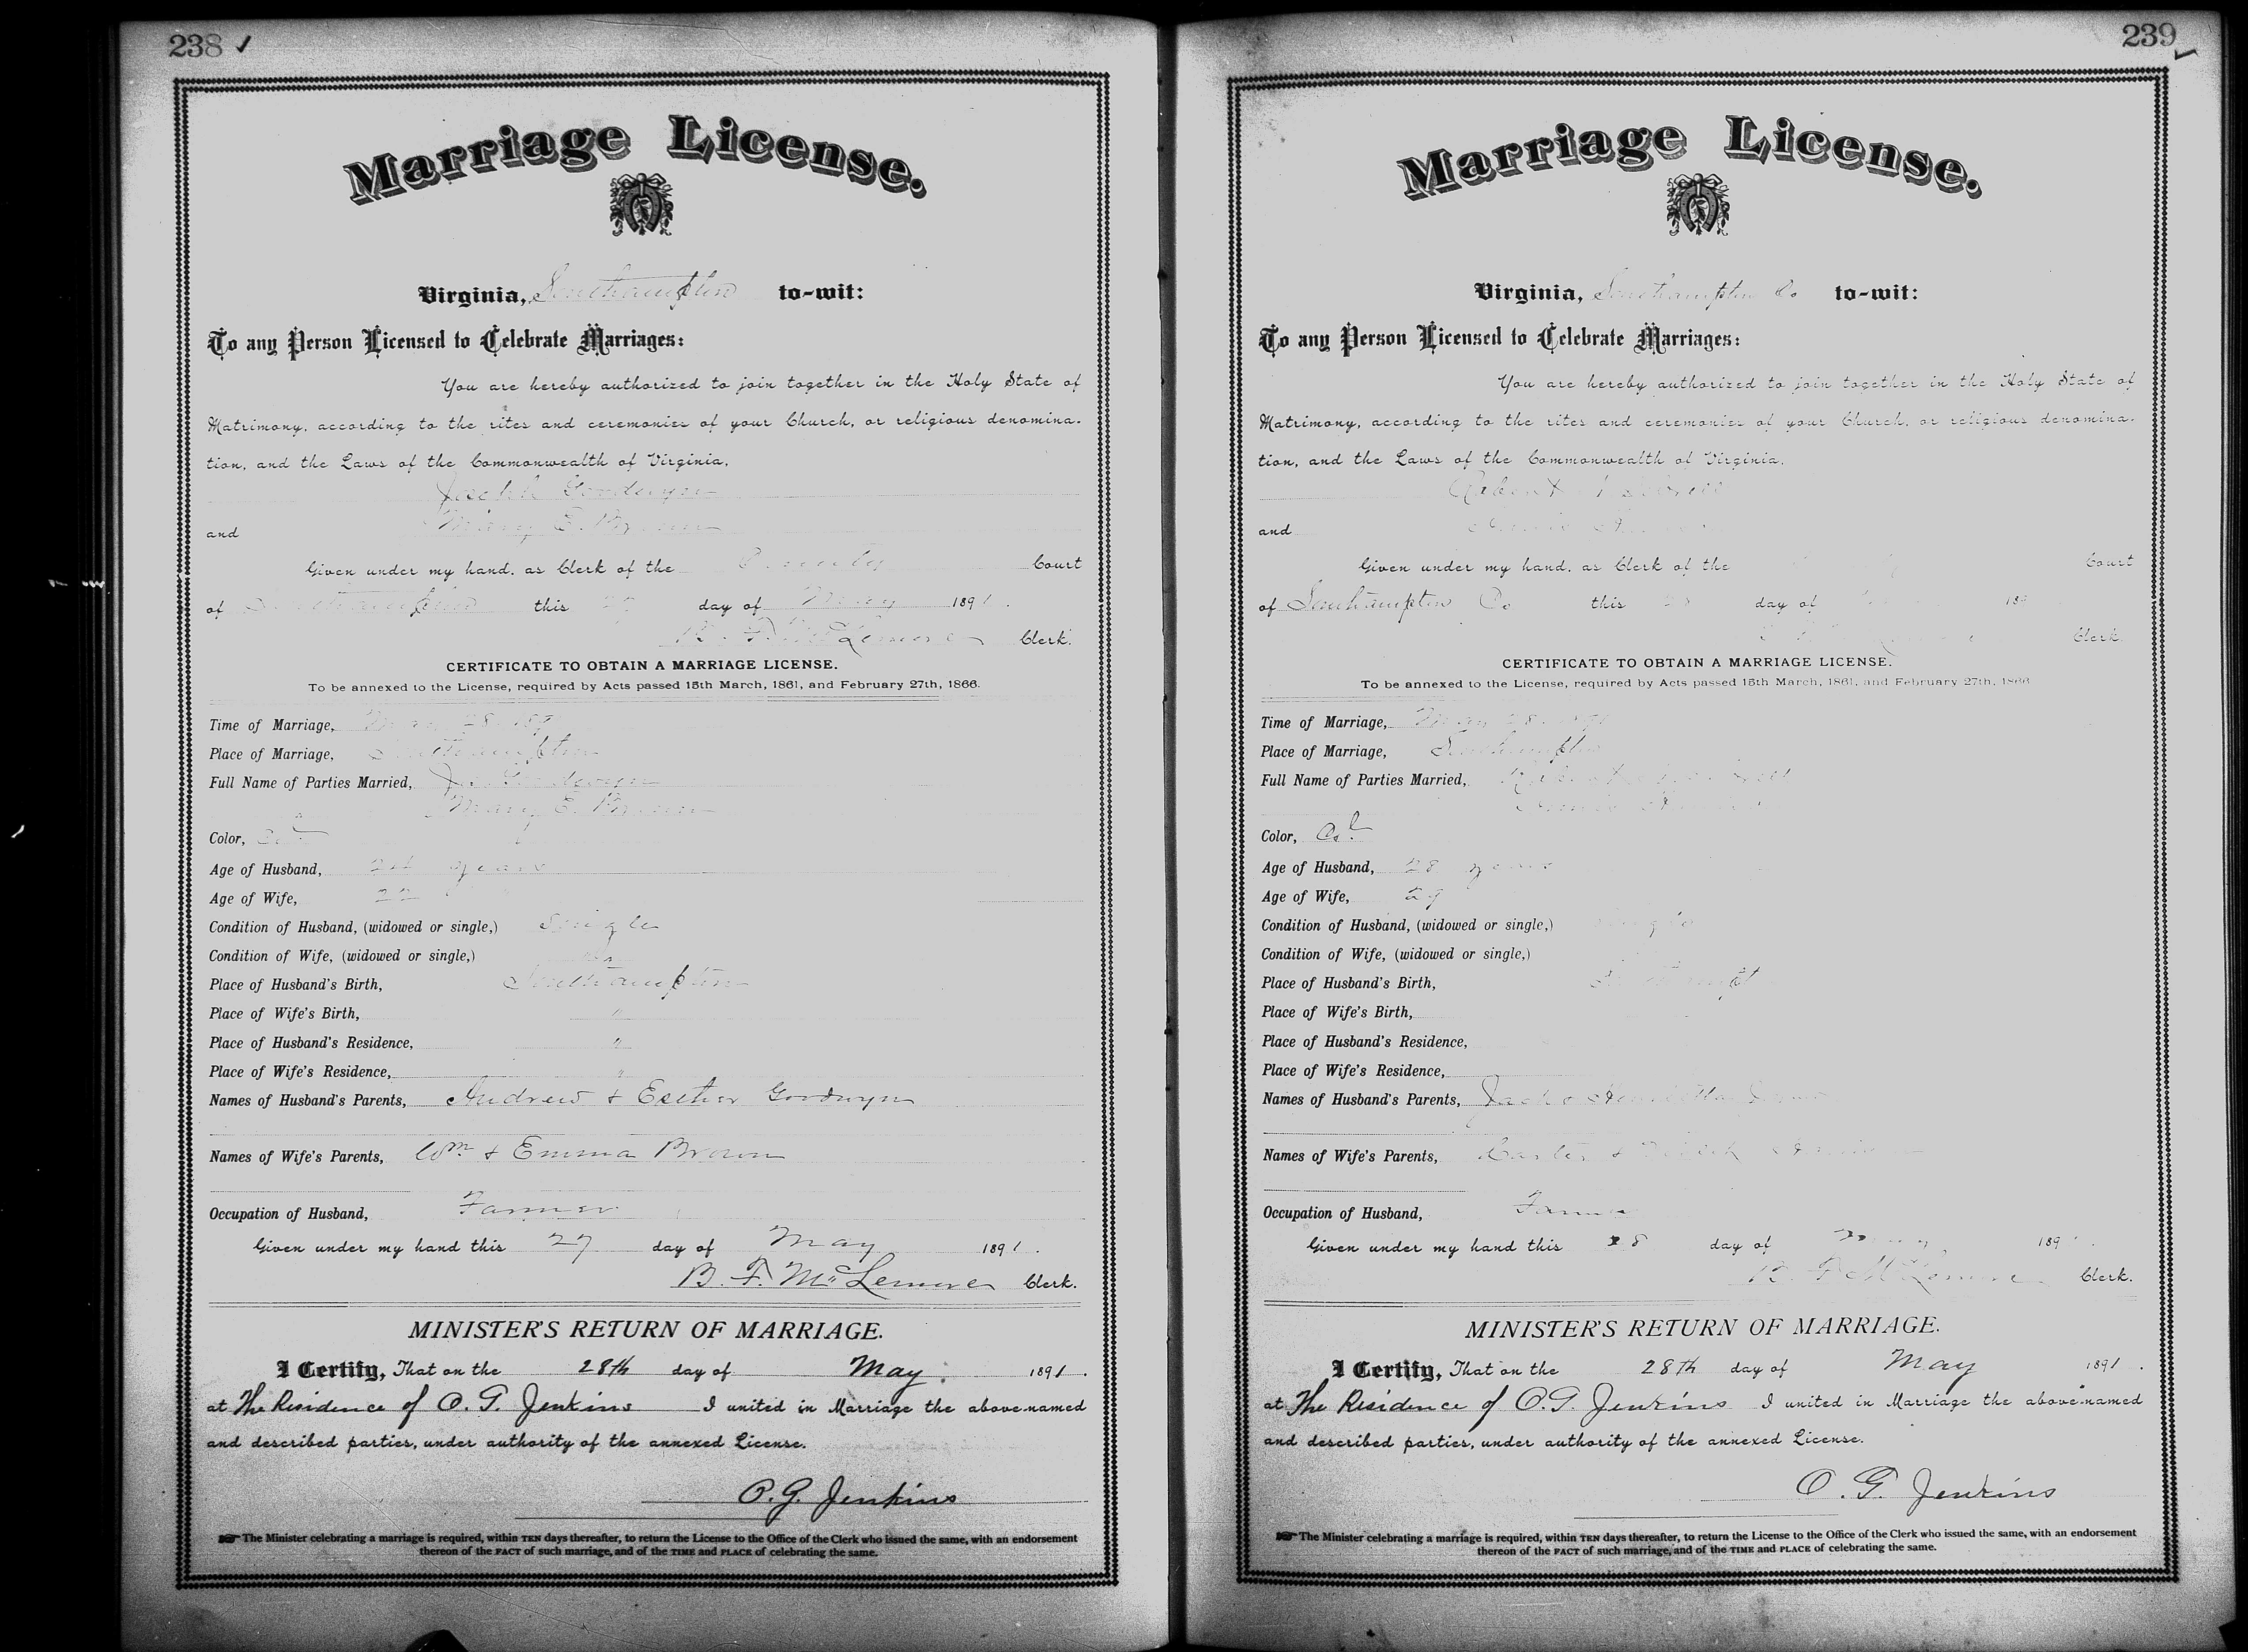 238
Marriage License.
Virginia, Southampton to-wit:
To any Person Licensed to Celebrate Marriages:
You are hereby authorized to join together in the Holy State of
Matrimony, according to the rites and ceremonies of your Church, or religious denomina-
tion, and the Laws of the Commonwealth of Virginia,
Joseph Goodwyn
and Mary E. Brown
Given under my hand, as Clerk of the County Court
of Southampton this 27 day of May 1891.
B. F. McLemore Clerk.
CERTIFICATE TO OBTAIN A MARRIAGE LICENSE.
To be annexed to the License, required by Acts passed 15th March, 1861, and February 27th, 1866.
Time of Marriage, May 28 189
Place of Marriage, Southampton
Full Name of Parties Married, Jos Goodwyn
Mary E. Brown
Color, Col
Age of Husband, 24 years
Age of Wife, 22
Condition of Husband, (widowed or single,) Single
Condition of Wife, (widowed or single,)
Place of Husband's Birth, Southampton
Place of Wife's Birth, "
Place of Husband's Residence, "
Place of Wife's Residence, "
Names of Husband's Parents, Andrew & Esther Goodwyn
Names of Wife's Parents, Wm & Emma Brown
Occupation of Husband, Farmer
Given under my hand this 27 day of May 1891.
B. F. McLemore Clerk.
MINISTER'S RETURN OF MARRIAGE.
I Certify, That on the 28th day of May 1891.
at The Residence of O. G. Jenkins I united in Marriage the above named
and described parties, under authority of the annexed License.
O. G. Jenkins
☞ The Minister celebrating a marriage is required, within TEN days thereafter, to return the License to the Office of the Clerk who issued the same, with an endorsement
thereon of the FACT of such marriage, and of the TIME and PLACE of celebrating the same.
239
Marriage License.
Virginia, Southampton Co to-wit:
To any Person Licensed to Celebrate Marriages:
You are hereby authorized to join together in the Holy State of
Matrimony, according to the rites and ceremonies of your Church, or religious denomina-
tion, and the Laws of the Commonwealth of Virginia,
Robert
and
Given under my hand, as Clerk of the Court
of Southampton Co this 28 day of 189
Clerk.
CERTIFICATE TO OBTAIN A MARRIAGE LICENSE.
To be annexed to the License, required by Acts passed 15th March, 1861, and February 27th, 1866
Time of Marriage, May 28 1891
Place of Marriage, Southampton
Full Name of Parties Married, Robert
Color, Col
Age of Husband, 28 years
Age of Wife, 29
Condition of Husband, (widowed or single,) Single
Condition of Wife, (widowed or single,)
Place of Husband's Birth, Southampt
Place of Wife's Birth,
Place of Husband's Residence,
Place of Wife's Residence,
Names of Husband's Parents, Jack & Henrietta
Names of Wife's Parents, Carter &
Occupation of Husband, Farmer
Given under my hand this 28 day of May 189
B. F. McLemore Clerk.
MINISTER'S RETURN OF MARRIAGE.
I Certify, That on the 28th day of May 1891.
at The Residence of O. G. Jenkins I united in Marriage the above named
and described parties, under authority of the annexed License.
O. G. Jenkins
☞ The Minister celebrating a marriage is required, within TEN days thereafter, to return the License to the Office of the Clerk who issued the same, with an endorsement
thereon of the FACT of such marriage, and of the TIME and PLACE of celebrating the same.